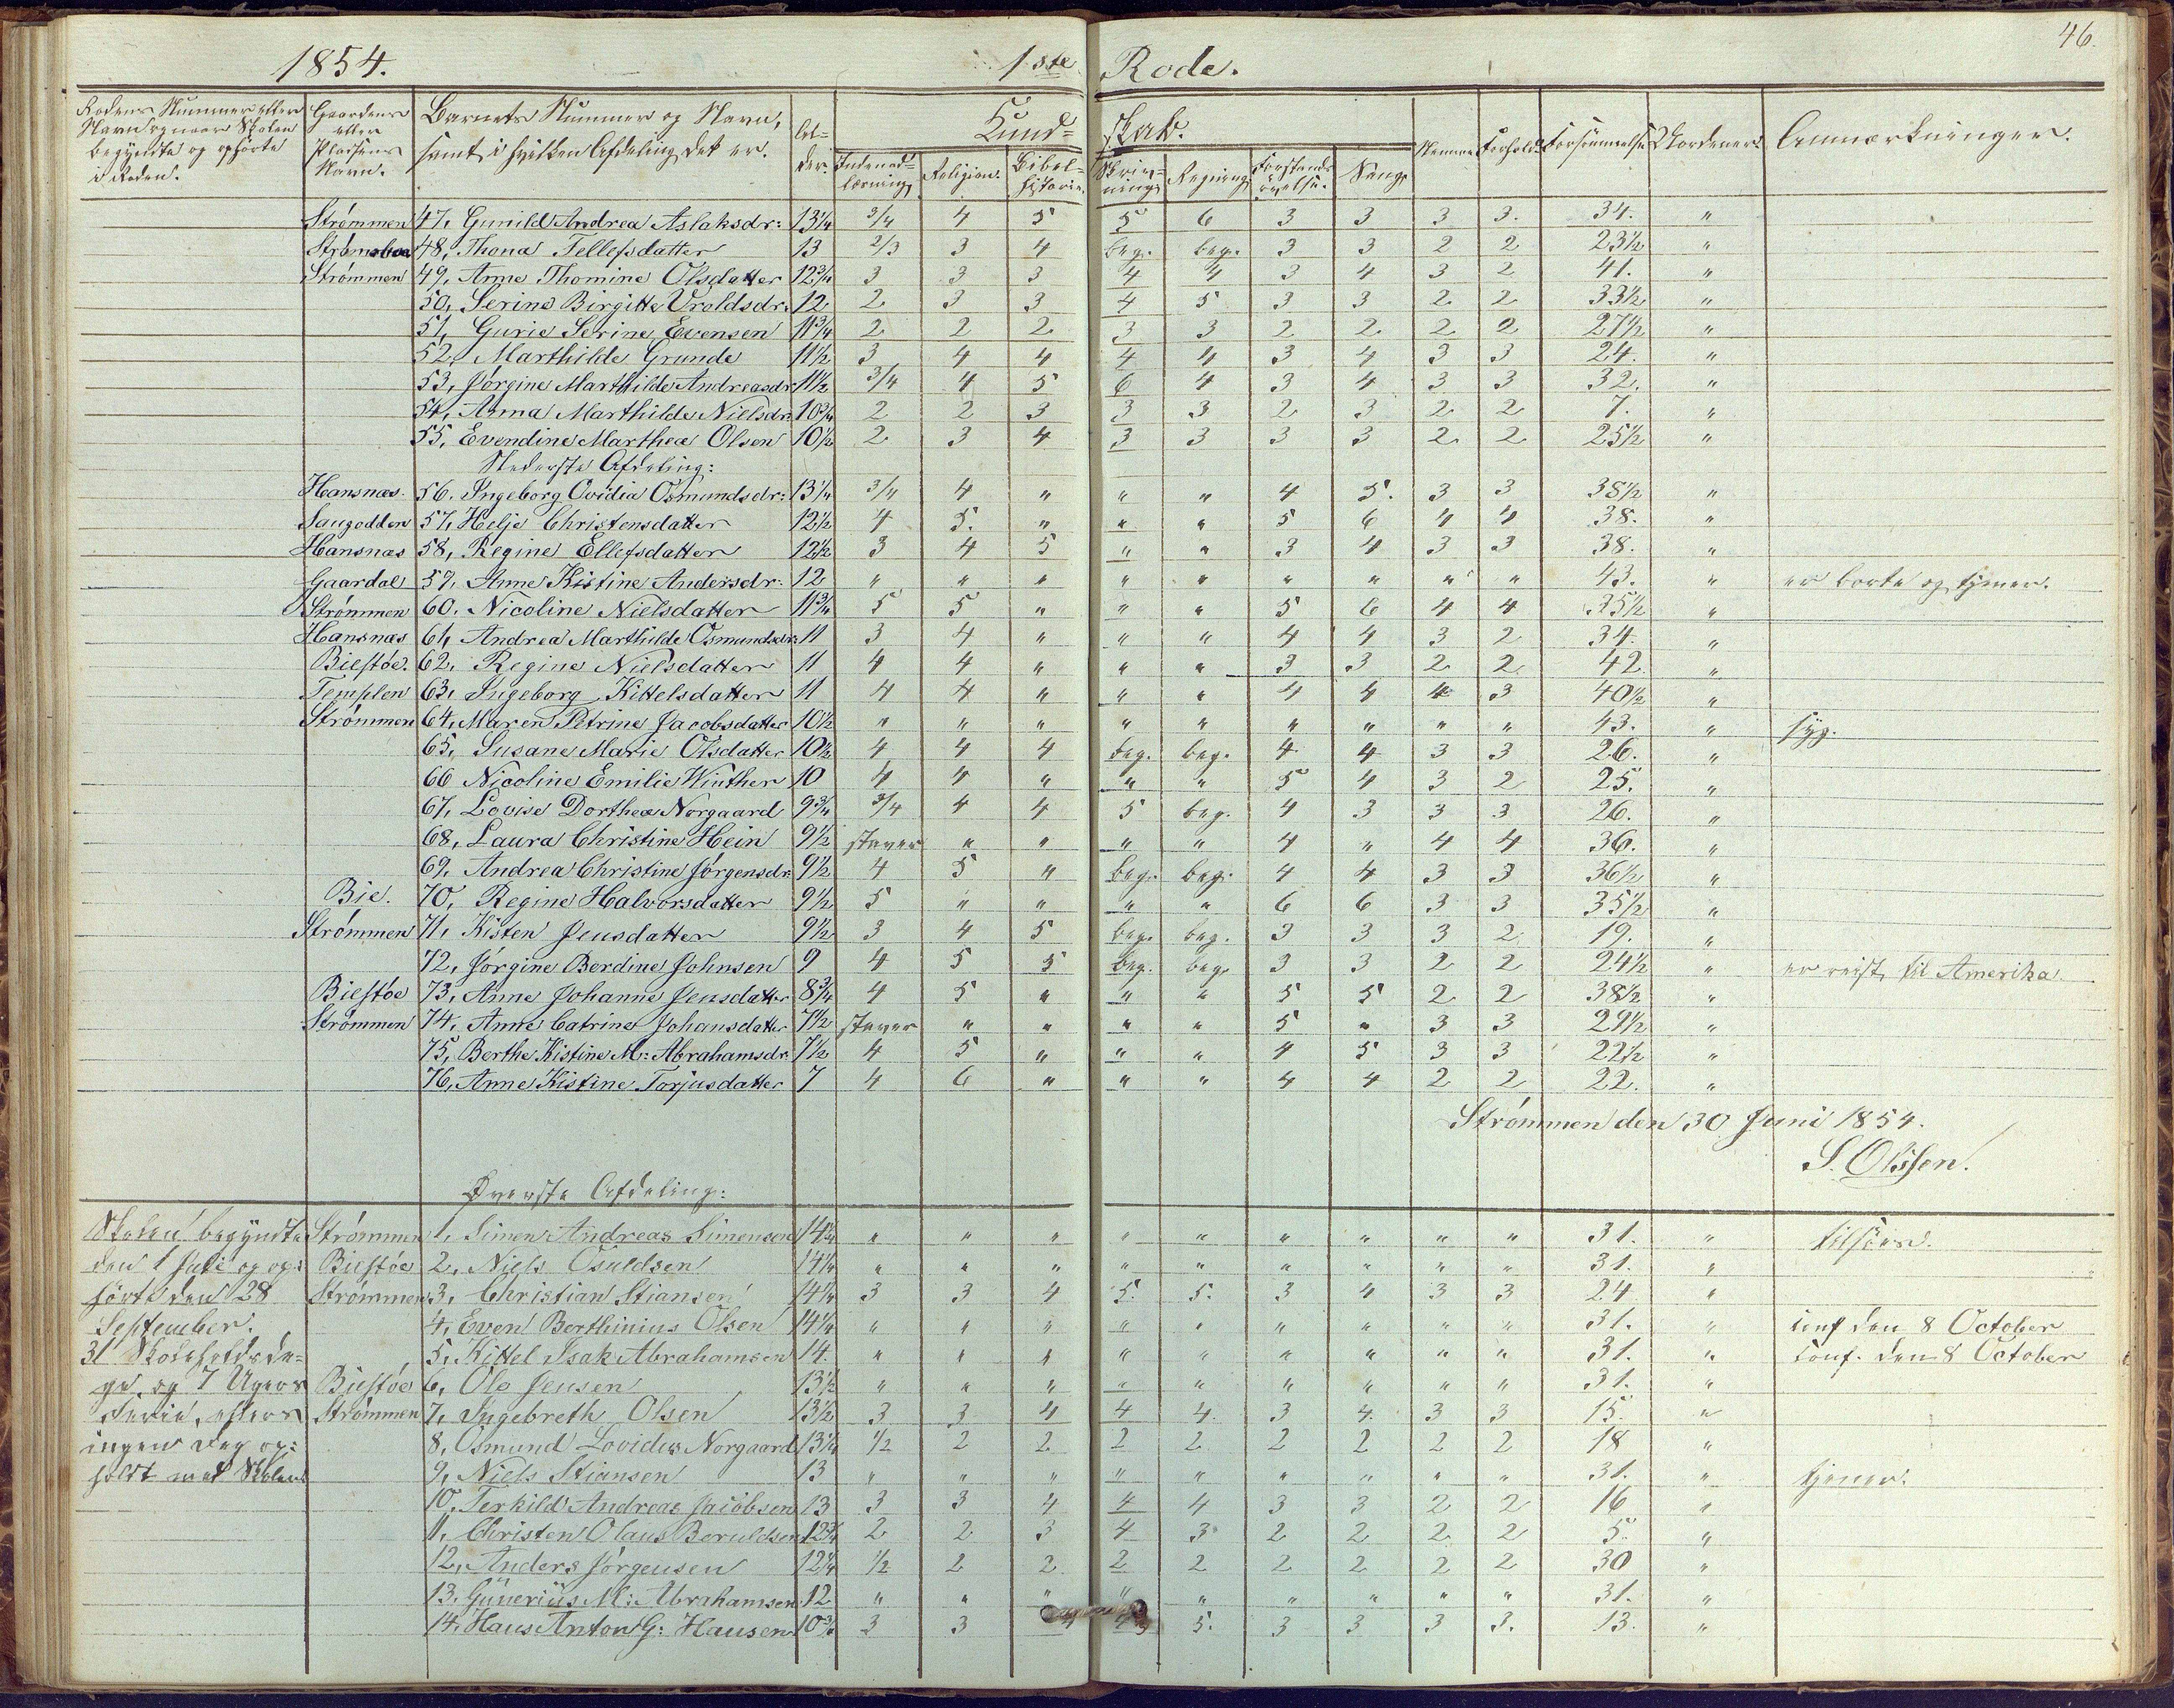 46.
1854. 1ste Rode.
Rodens Nummer eller Navn og naar Skolen begyndte og ophørte i Roden. Gaardens eller Pladsens Navn. Barnets Nummer og Navn, samt i hvilken Afdeling det er. Alder. Kundskab. Evner Forhold Forsømmelse Anmærkninger.
Indenadlæsning Religion. Bibelhistorie. Skrivning Regning Forstandsøvelse. Sang.
Strømmen 47, Gunild Andrea Aslaksdr: 13 1/4 3/4 4 5 5 6 3 3 3 3. 34. "
Strømsboe 48, Thona Tellefsdatter 13 2/3 3 4 beg. beg. 3 3 2 2 23 1/2 "
Strømmen 49, Anne Thomine Olsdatter 12 3/4 3 3 3 4 4 3 4 3 2 41. "
50, Serine Birgitte Uroldsdr. 12 2 3 3 4 5 3 3 2 2 33 1/2 "
51, Gurie Serine Evensen 11 3/4 2 2 2 3 3 2 2 2 2 27 1/2 "
52, Marthilde Grunde 11 1/2 3 4 4 4 4 3 4 3 3 24. "
53, Jørgine Marthilde Andreasdr 11 1/2 3/4 4 5 6 4 3 4 3 3 32. "
54, Anna Marthilde Nielsdr. 10 3/4 2 2 3 3 3 2 3 2 2 7. "
55, Evendine Marthea Olsen 10 1/2 2 3 4 3 3 3 3 2 2 25 1/2 "
Nederste Afdeling:
Hansnæs. 56. Ingeborg Ovidia Osmundsdr: 13 1/4 3/4 4 " " " 4 5. 3 3 38 1/2 "
Saugodden 57, Helje Christensdatter 12 1/2 4 5. " " " 5 6 4 4 38. "
Hansnæs 58, Regine Ellefsdatter 12 1/2 3 4 5 " " 3 4 3 3 38. "
Gaardal 59, Anne Kistine Andersdr. 12 " " " " " " " " " 43. " er borte og tjener.
Strømmen 60. Nicoline Nielsdatter 11 3/4 5 5 " " " 5 6 4 4 35 1/2 "
Hansnæs 61, Andrea Marthilde Osmundsdr: 11 3 4 " " " 4 4 3 2 34. "
Biestøe. 62, Regine Nielsdatter 11 4 4 " " " 3 3 2 2 42 "
Templen 63, Ingeborg Kittelsdatter 11 4 4 " " " 4 4 4 3 40 1/2 "
Strømmen 64, Maren Petrine Jacobsdatter 10 1/2 " " " " " " " " " 43. " syg.
65, Susane Marie Olsdatter 10 1/2 4 4 4 beg. beg. 4 4 3 3 26. "
66 Nicoline Emilie Winther 10 4 4 " " " 5 4 3 2 25. "
67, Lovise Dorthea Norgaard 9 3/4 3/4 4 4 5 beg. 4 3 3 3 26. "
68, Laura Christine Hein 9 1/2 staver " " " " 4 " 4 4 36. "
69, Andrea Christine Jørgensdr. 9 1/2 4 5 " beg. beg. 4 4 3 3 36 1/2 "
Bie. 70, Regine Halvorsdatter 9 1/2 5 " " " " 6 6 3 3 35 1/2 "
Strømmen 71, Kisten Jensdatter 9 1/2 3 4 5 beg. beg. 3 3 3 2 19. "
72, Jørgine Berdine Johnsen 9 4 5 5 beg. beg. 3 3 2 2 24 1/2 " er reist til Amerika
Biestøe 73, Anne Johanne Jensdatter 8 3/4 4 5 " " " 5 5 2 2 38 1/2 "
Strømmen 74, Anne Catrine Johansdatter 7 1/2 staver " " " " 5 " 3 3 29 1/2 "
75, Berthe Kistine M: Abrahamsdr. 7 1/2 4 5 " " " 4 5 3 3 22 1/2 "
76, Anne Kistine Torjusdatter 7 4 6 " " " 4 4 2 2 22. "
Strømmen den 30 Juni 1854.
S. Olssen.
Øverste Afdeling:
Skolen begyndte Strømmen 1, Simen Andreas Simensen 14 3/4 " " " " " " " " " 31. " tilsøes.
den 1 Juli og op= Biestøe 2, Niels Osuldsen 14 1/4 " " " " " " " " " 31. "
hørte den 28 Strømmen 3, Christian Stiansen 14 1/4 3 3 4 5. 5. 3 4 3 3 24 "
September. 4, Even Berthinius Olsen 14 1/4 " " " " " " " " " 31. " conf den 8 October
31 Skoleholdsda= 5, Kittel Isak Abrahamsen 14. " " " " " " " " " 31. " conf. den 8 October
ge og 7 Ugers Biestøe 6, Ole Jensen 13 1/2 " " " " " " " " " 31. "
Ferie, ellers Strømmen 7, Ingebreth Olsen 13 1/2 3 3 4 4 4. 3 4. 3 3 15. "
ingen Dag op= 8, Osmund Lovidus Norgaard 13 1/4 1/2 2 2 2 2 2 2 2 2 18 "
holdt med Skolen 9, Niels Stiansen 13 " " " " " " " " " 31. " tjener.
10, Terkild Andreas Jacobsen 13 3 3 4 4 4 3 3 2 2 16 "
11, Christen Olaus Beruldsen 12 3/4 2 2 3 4 3 2 2 2 2 5. "
12, Anders Jørgensen 12 1/4 1/2 2 2 2 2 2 2 2 2 30 "
13, Gunerius M: Abrahamsen 12 " " " " " " " " " 31. "
14, Hans Anton G: Hansen 10 3/4 3 3 4 5. 3 3 3 3. 13. "